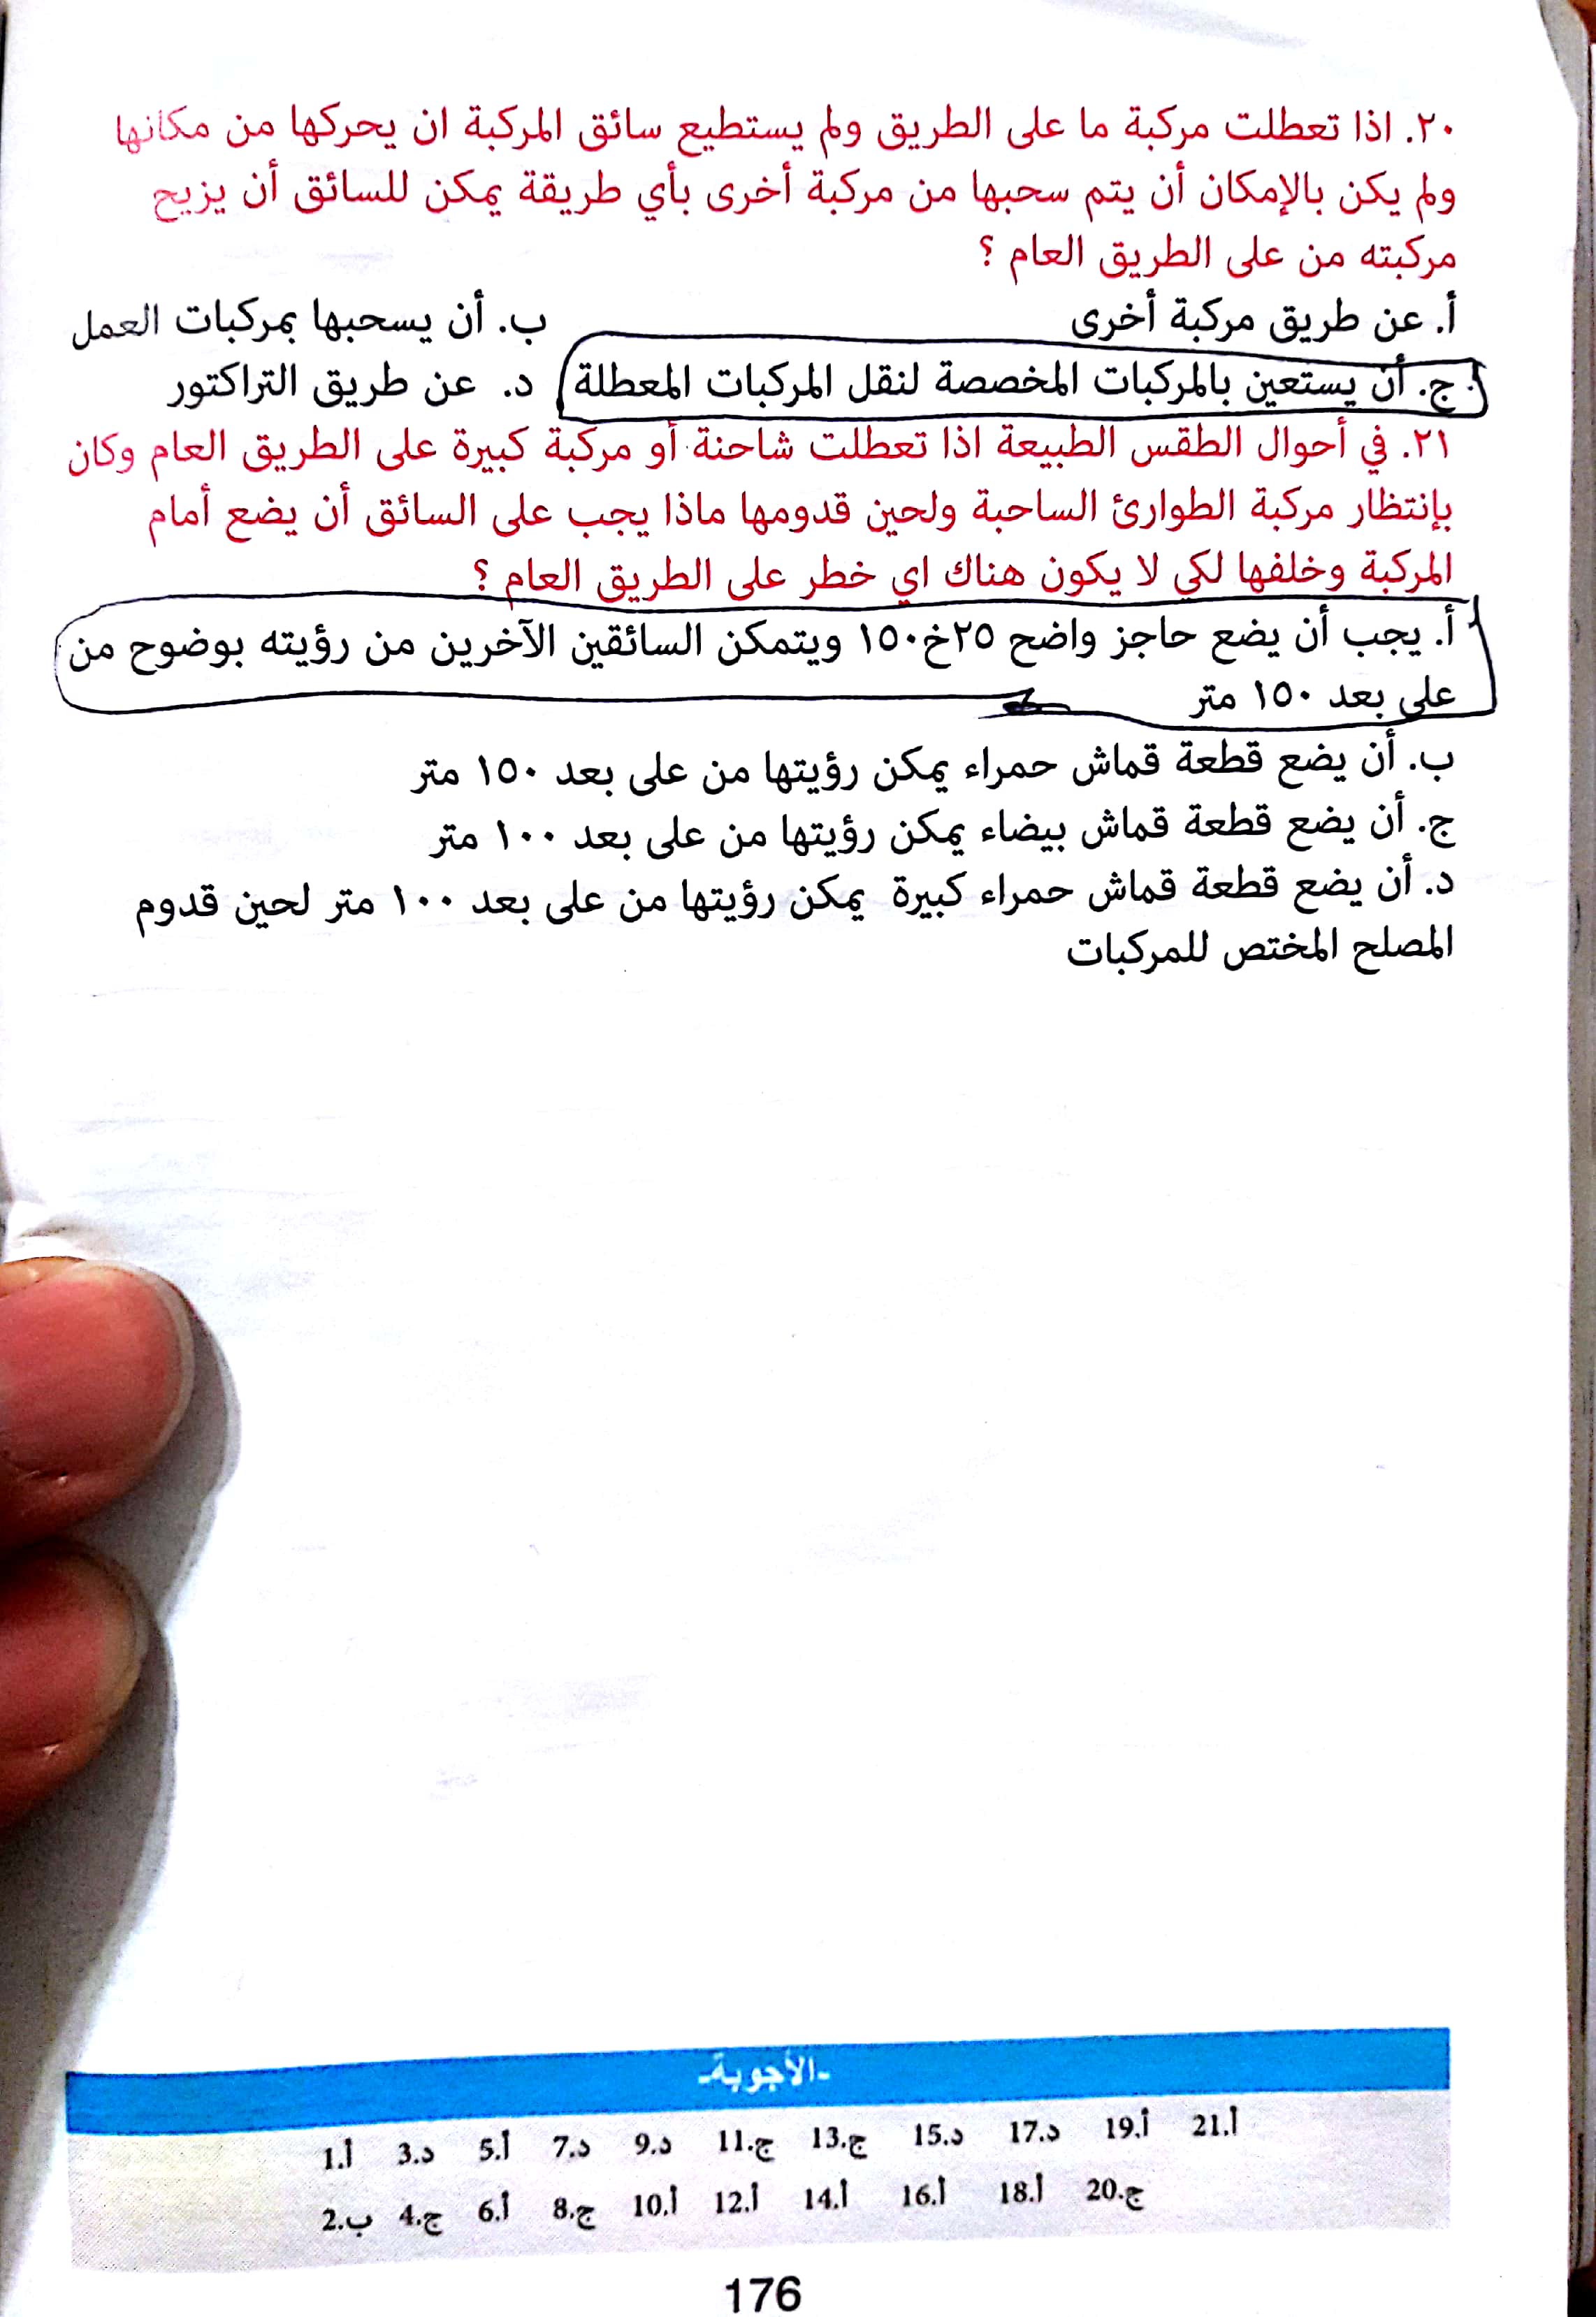 ٢٠. اذا تعطلت مركبة ما على الطريق ولم يستطيع سائق المركبة ان يحركها من مكانها
ولم يكن بالإمكان أن يتم سحبها من مركبة أخرى بأي طريقة يمكن للسائق أن يزيح
مركبته من على الطريق العام ؟
أ. عن طريق مركبة أخرى ب. أن يسحبها بمركبات العمل
ج. أن يستعين بالمركبات المخصصة لنقل المركبات المعطلة د. عن طريق التراكتور
٢١. في أحوال الطقس الطبيعة اذا تعطلت شاحنة أو مركبة كبيرة على الطريق العام وكان
بإنتظار مركبة الطوارئ الساحبة ولحين قدومها ماذا يجب على السائق أن يضع أمام
المركبة وخلفها لكي لا يكون هناك اي خطر على الطريق العام ؟
أ. يجب أن يضع حاجز واضح ٢٥خ١٥٠ ويتمكن السائقين الآخرين من رؤيته بوضوح من
على بعد ١٥٠ متر
ب. أن يضع قطعة قماش حمراء يمكن رؤيتها من على بعد ١٥٠ متر
ج. أن يضع قطعة قماش بيضاء يمكن رؤيتها من على بعد ١٠٠ متر
د. أن يضع قطعة قماش حمراء كبيرة يمكن رؤيتها من على بعد ١٠٠ متر لحين قدوم
المصلح المختص للمركبات
-الأجوبة-
1.أ 3.د 5.أ 7.د 9.د 11.ج 13.ج 15.د 17.د 19.أ 21.أ
2.ب 4.ج 6.أ 8.ج 10.أ 12.أ 14.أ 16.أ 18.أ 20.ج
176